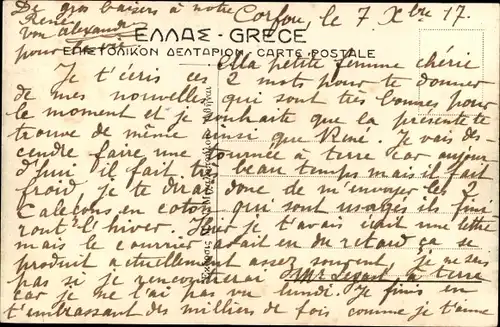 De gros baisers à notre
René
von Alexandre
pour
Corfou, le 7 Xbre 17.
ΕΛΛΑΣ - GRÈCE
ΕΠΙΣΤΟΛΙΚΟΝ ΔΕΛΤΑΡΙΟΝ - CARTE POSTALE
Ma petite femme chérie
Je t'écris ces 2 mots pour te donner
de mes nouvelles qui sont très bonnes pour
le moment et je souhaite que la présente te
trouve de même ainsi que René. Je vais des-
cendre faire une tournée à terre car aujour-
d'hui il fait très beau temps mais il fait
froid, je te dirai donc de m'envoyer les 2
Caleçons en coton qui sont usagés ils fini-
ront l'hiver. Hier je t'avais écrit une lettre
mais le courrier avait eu du retard ça se
produit actuellement assez souvent, je ne sais
pas si je rencontrerai Mr à terre
car je ne l'ai pas vu lundi. Je finis en
t'embrassant des milliers de fois comme je t'aime